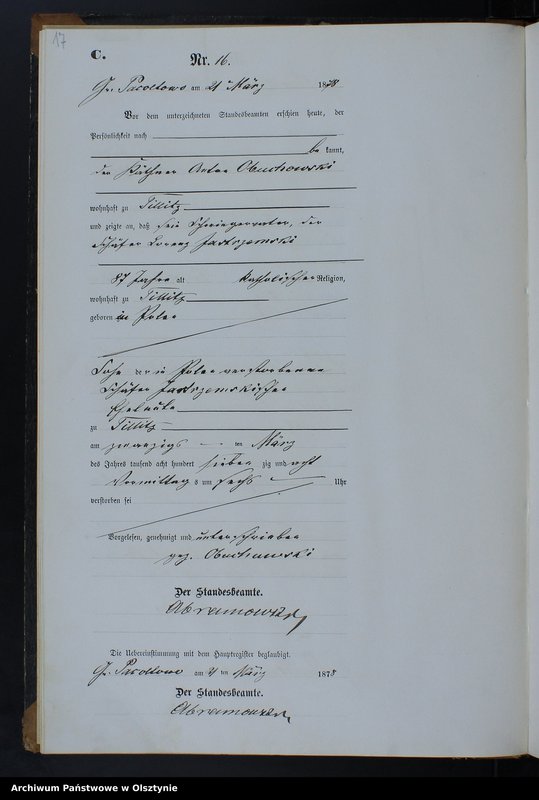 17
C.
Nr. 16.
Gr. Pacoltowo am 21 ten März 1878
Vor dem unterzeichneten Standesbeamten erschien heute, der
Persönlichkeit nach
be kannt,
der Käthner Anton Obuchowski
wohnhaft zu Tillitz
und zeigte an, daß sein Schwiegervater, der
Schäfer Lorenz Jastrzemski
87 Jahre alt katholischer Religion,
wohnhaft zu Tillitz
geboren in Polen
Sohn der in Polen verstorbenen
Schäfer Jastrzemskischen
Eheleute
zu Tillitz
am zwanzigs ten März
des Jahres tausend acht hundert sieben zig und acht
Vormittags um sechs Uhr
verstorben sei
Vorgelesen, genehmigt und unterschrieben
gez. Obuchowski
Der Standesbeamte.
Abramowski
Die Uebereinstimmung mit dem Hauptregister beglaubigt.
Gr. Pacoltowo am 21 ten März 1878
Der Standesbeamte.
Abramowski
Archiwum Państwowe w Olsztynie